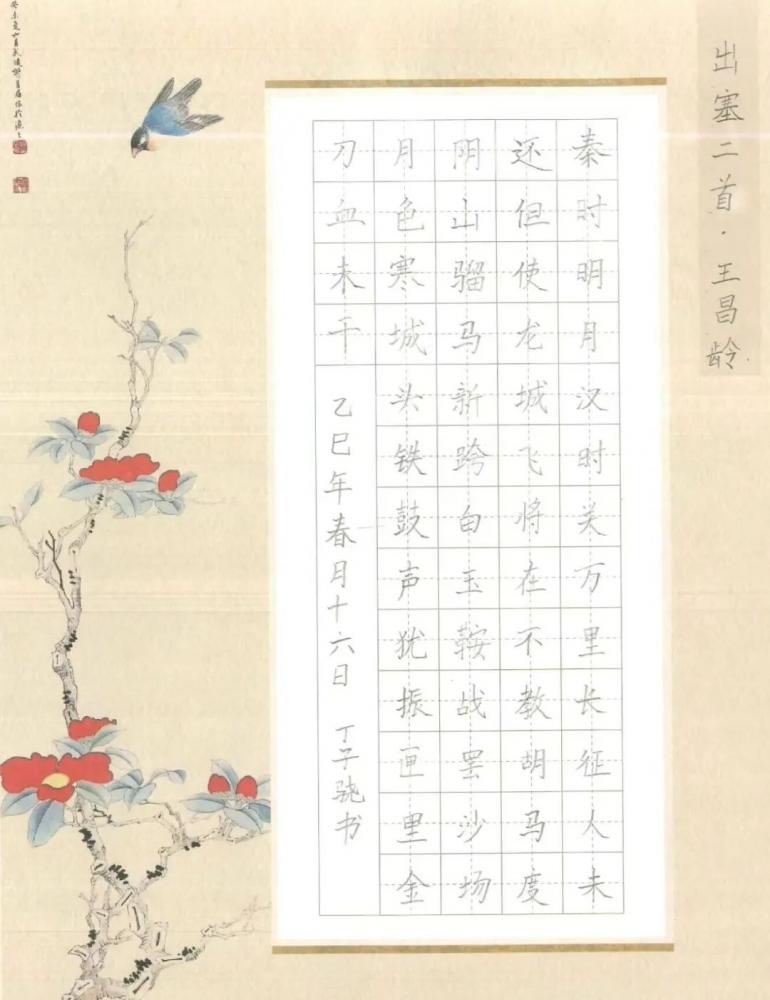 出塞二首·王昌龄
秦时明月汉时关万里长征人未
还但使龙城飞将在不教胡马度
阴山骝马新跨白玉鞍战罢沙场
月色寒城头铁鼓声犹振匣里金
刀血未干
乙巳年春月十六日 丁子骁书